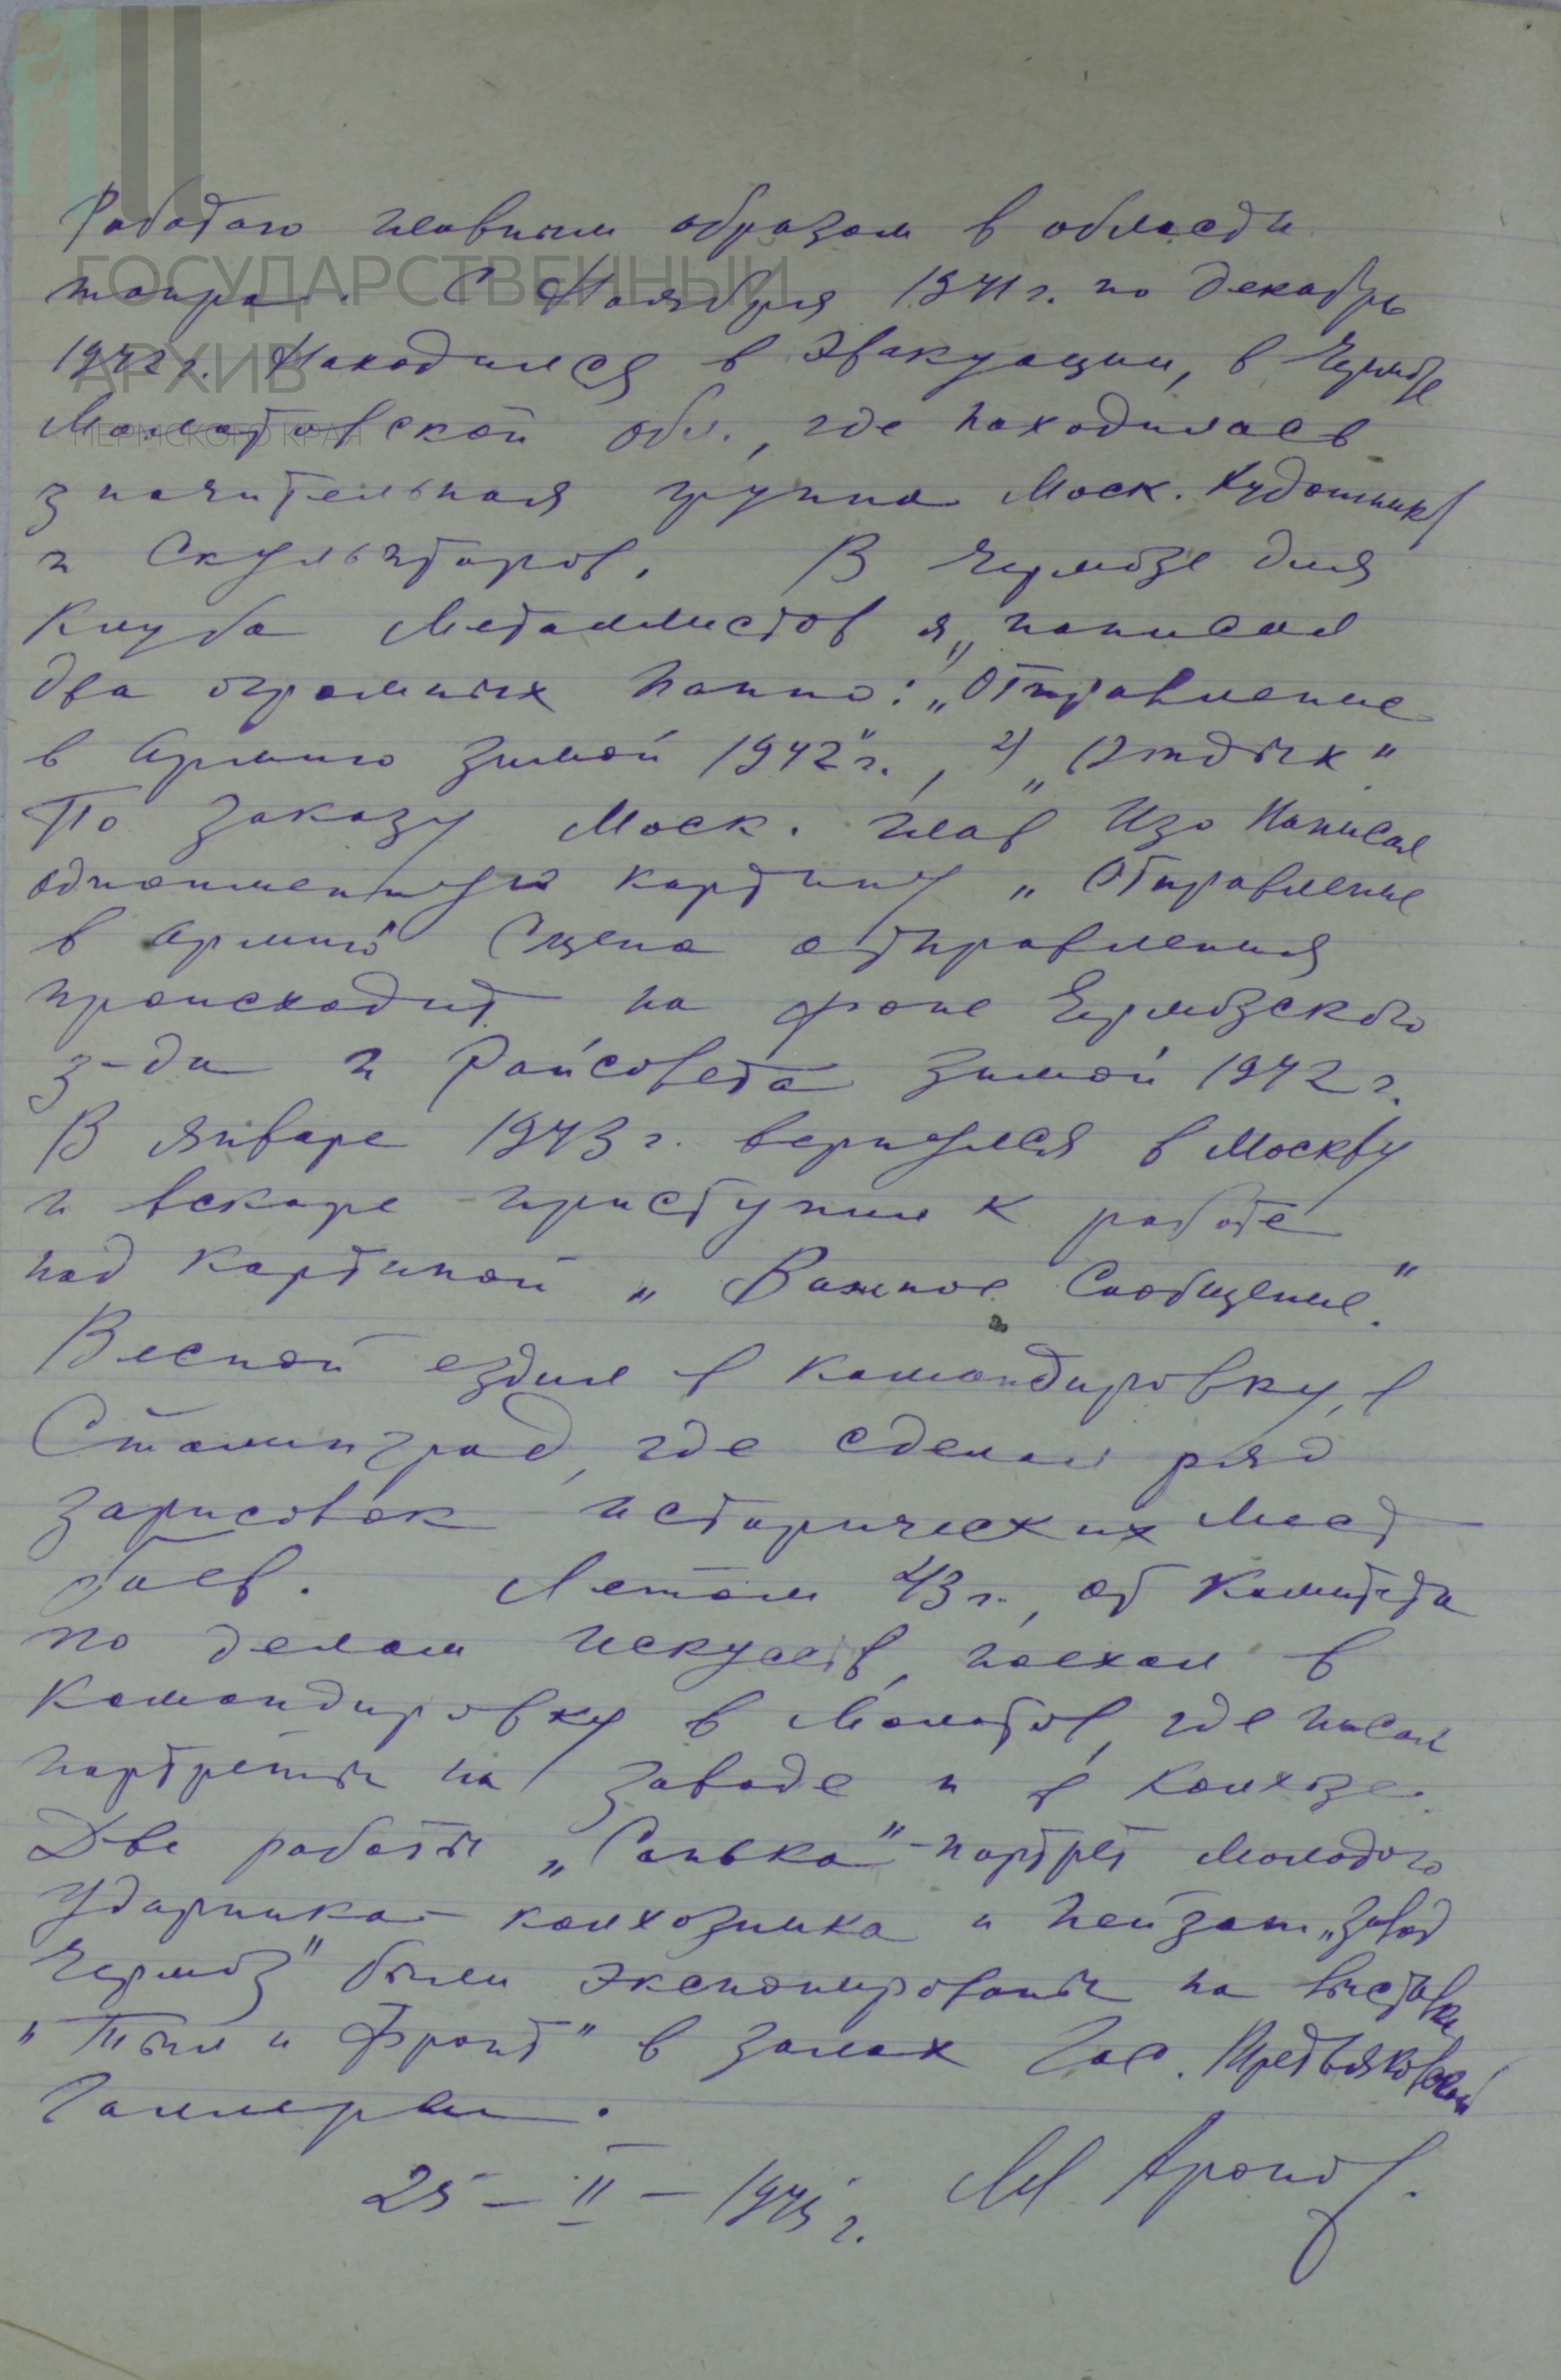 Работаю главным образом в области
жанра. С Ноября 1941 г. по декабрь
1942 г. Находился в эвакуации, в Чермозе
Молотовской обл., где находилась
значительная группа Моск. Художников
и Скульпторов. В Чермозе для
Клуба Металлистов я написал
два огромных панно: 1) „Отправление
в Армию зимой 1942" г., 2) „Отдых"
По заказу Моск. Глав Изо Написал
одноименную картину „Отправление
в Армию" Сцена отправления
происходит на фоне Чермозского
з-да и Райсовета зимой 1942 г.
В январе 1943 г. вернулся в Москву
и вскоре приступил к работе
над картиной „Важное Сообщение".
Весной ездил в командировку, в
Сталинград, где сделал ряд
зарисовок исторических мест
боев. Летом 43 г., от Комитета
по делам Искусств, поехал в
командировку в Молотов, где писал
портреты на заводе и в колхозе.
Две работы „Санька" - портрет молодого
ударника-колхозника и пейзаж „завод
Чермоз" были экспонированы на выставке
„Тыл и Фронт" в залах Гос. Третьяковской
Галлереи.
25 - II - 1945 г. М Аронов.
ГОСУДАРСТВЕННЫЙ
АРХИВ
ПЕРМСКОГО КРАЯ